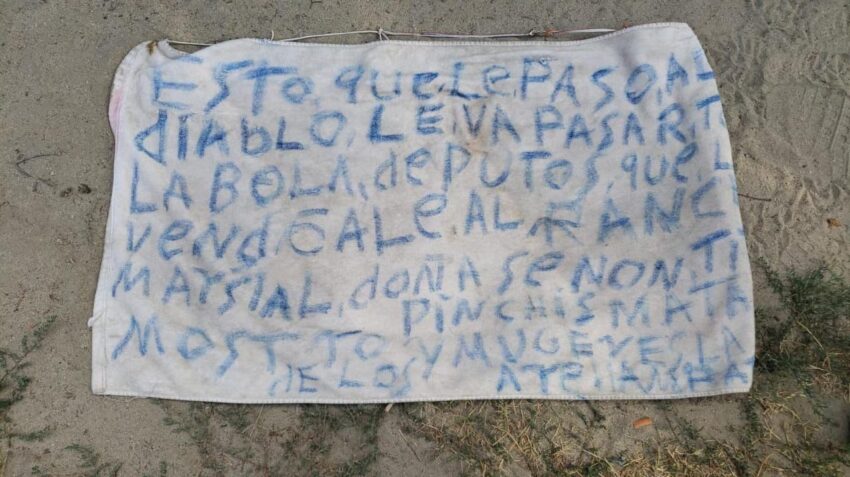 ESTO, que, LE, PASO, AL
dIABLO, LE, VA PASAR, T
LA BOLA, de PUTOS, que, L
VENdE ALE, AL
MARSIAL, dOÑA SE NON, TI
PINCHIS MATA
MOST TO Y MUGERES LA
DE LOS